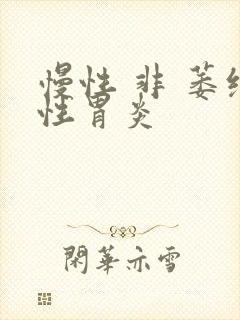 慢性非萎缩
性胃炎
閑華亦雪